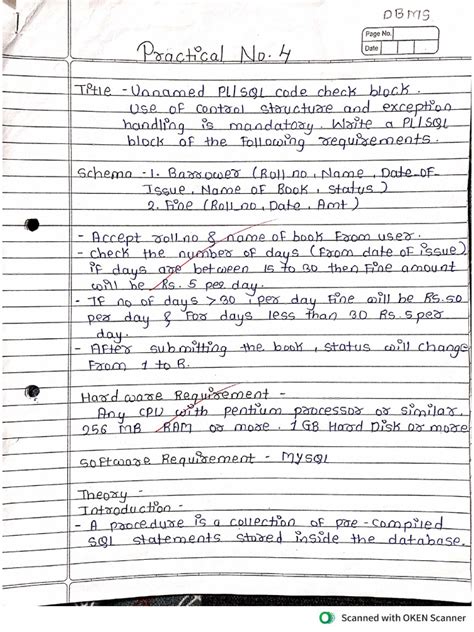 DBMS
Page No.
Date
Practical No. 4
Title - Unnamed PL/SQL code check block.
Use of control structure and exception
handling is mandatory. Write a PL/SQL
block of the following requirements.
Schema - 1. Barrower (Roll no, Name, Date-OF-
Issue, Name of Book, status)
2. Fine (Roll_no, Date, Amt)
- Accept roll no & name of book From user.
- check the number of days (From date of issue)
if days are between 15 to 30 then Fine amount
will be Rs. 5 per day.
- IF no of days >30, per day Fine will be RS.50
per day & For days less than 30 Rs.5 per
day.
- After submitting the book, status will change
From I to R.
Hard ware Requirement -
Any CPU with pentium processor or similar,
256 MB RAM or more. 1 GB Hard Disk or more
software Requirement - MYSQL
Theory -
Introduction -
- A procedure is a collection of pre-compiled
SQL statements stored inside the database.
Scanned with OKEN Scanner